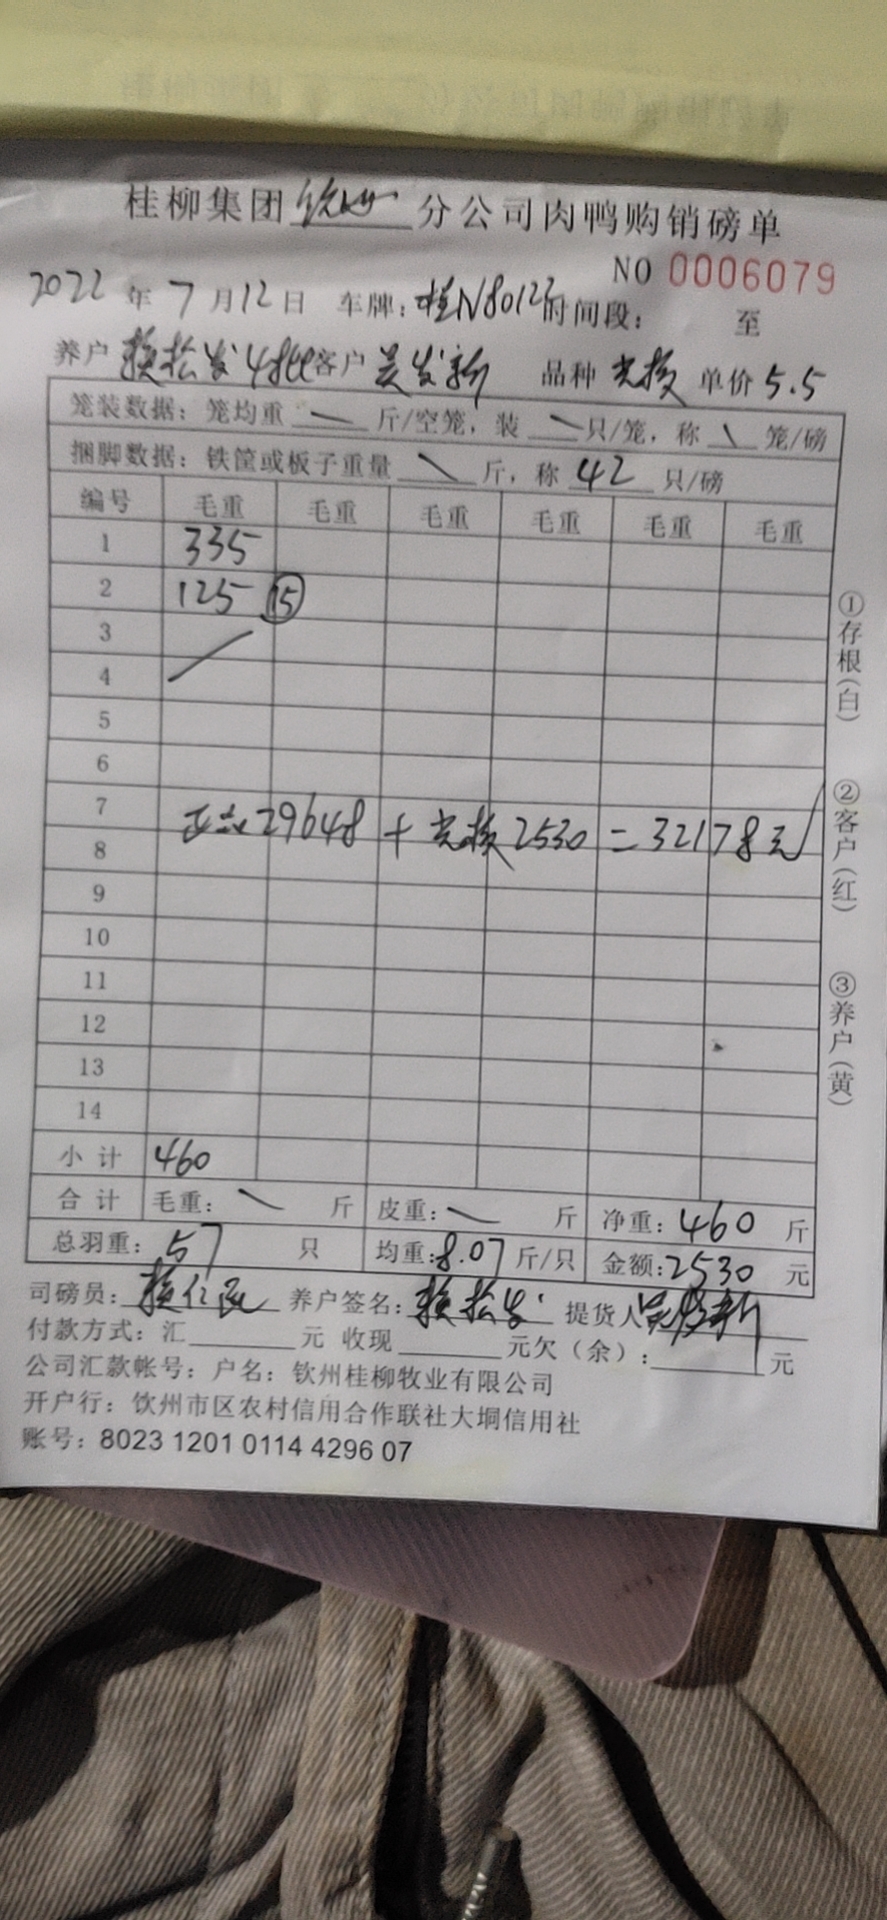 桂柳集团 分公司肉鸭购销磅单
NO 0006079
2022 年 7 月 12 日 车牌：桂N8012 时间段： 至
养户 客户 吴发新 品种 单价 5.5
笼装数据：笼均重 \ 斤/空笼，装 \ 只/笼，称 \ 笼/磅
捆脚数据：铁筐或板子重量 \ 斤，称 42 只/磅
编号 毛重 毛重 毛重 毛重 毛重 毛重
1 335
2 125 ⑮
3
4
5
6
7
正品29648 + 2530 = 32178元
8
9
10
11
12
13
14
小计 460
合计 毛重： \ 斤 皮重： \ 斤 净重：460 斤
总羽重：57 只 均重：8.07 斤/只 金额：2530 元
司磅员： 养户签名： 提货人 吴发新
付款方式：汇 元 收现 元欠（余）： 元
公司汇款帐号：户名：钦州桂柳牧业有限公司
开户行：饮州市区农村信用合作联社大垌信用社
账号：8023 1201 0114 4296 07
①存根（白）
②客户（红）
③养户（黄）